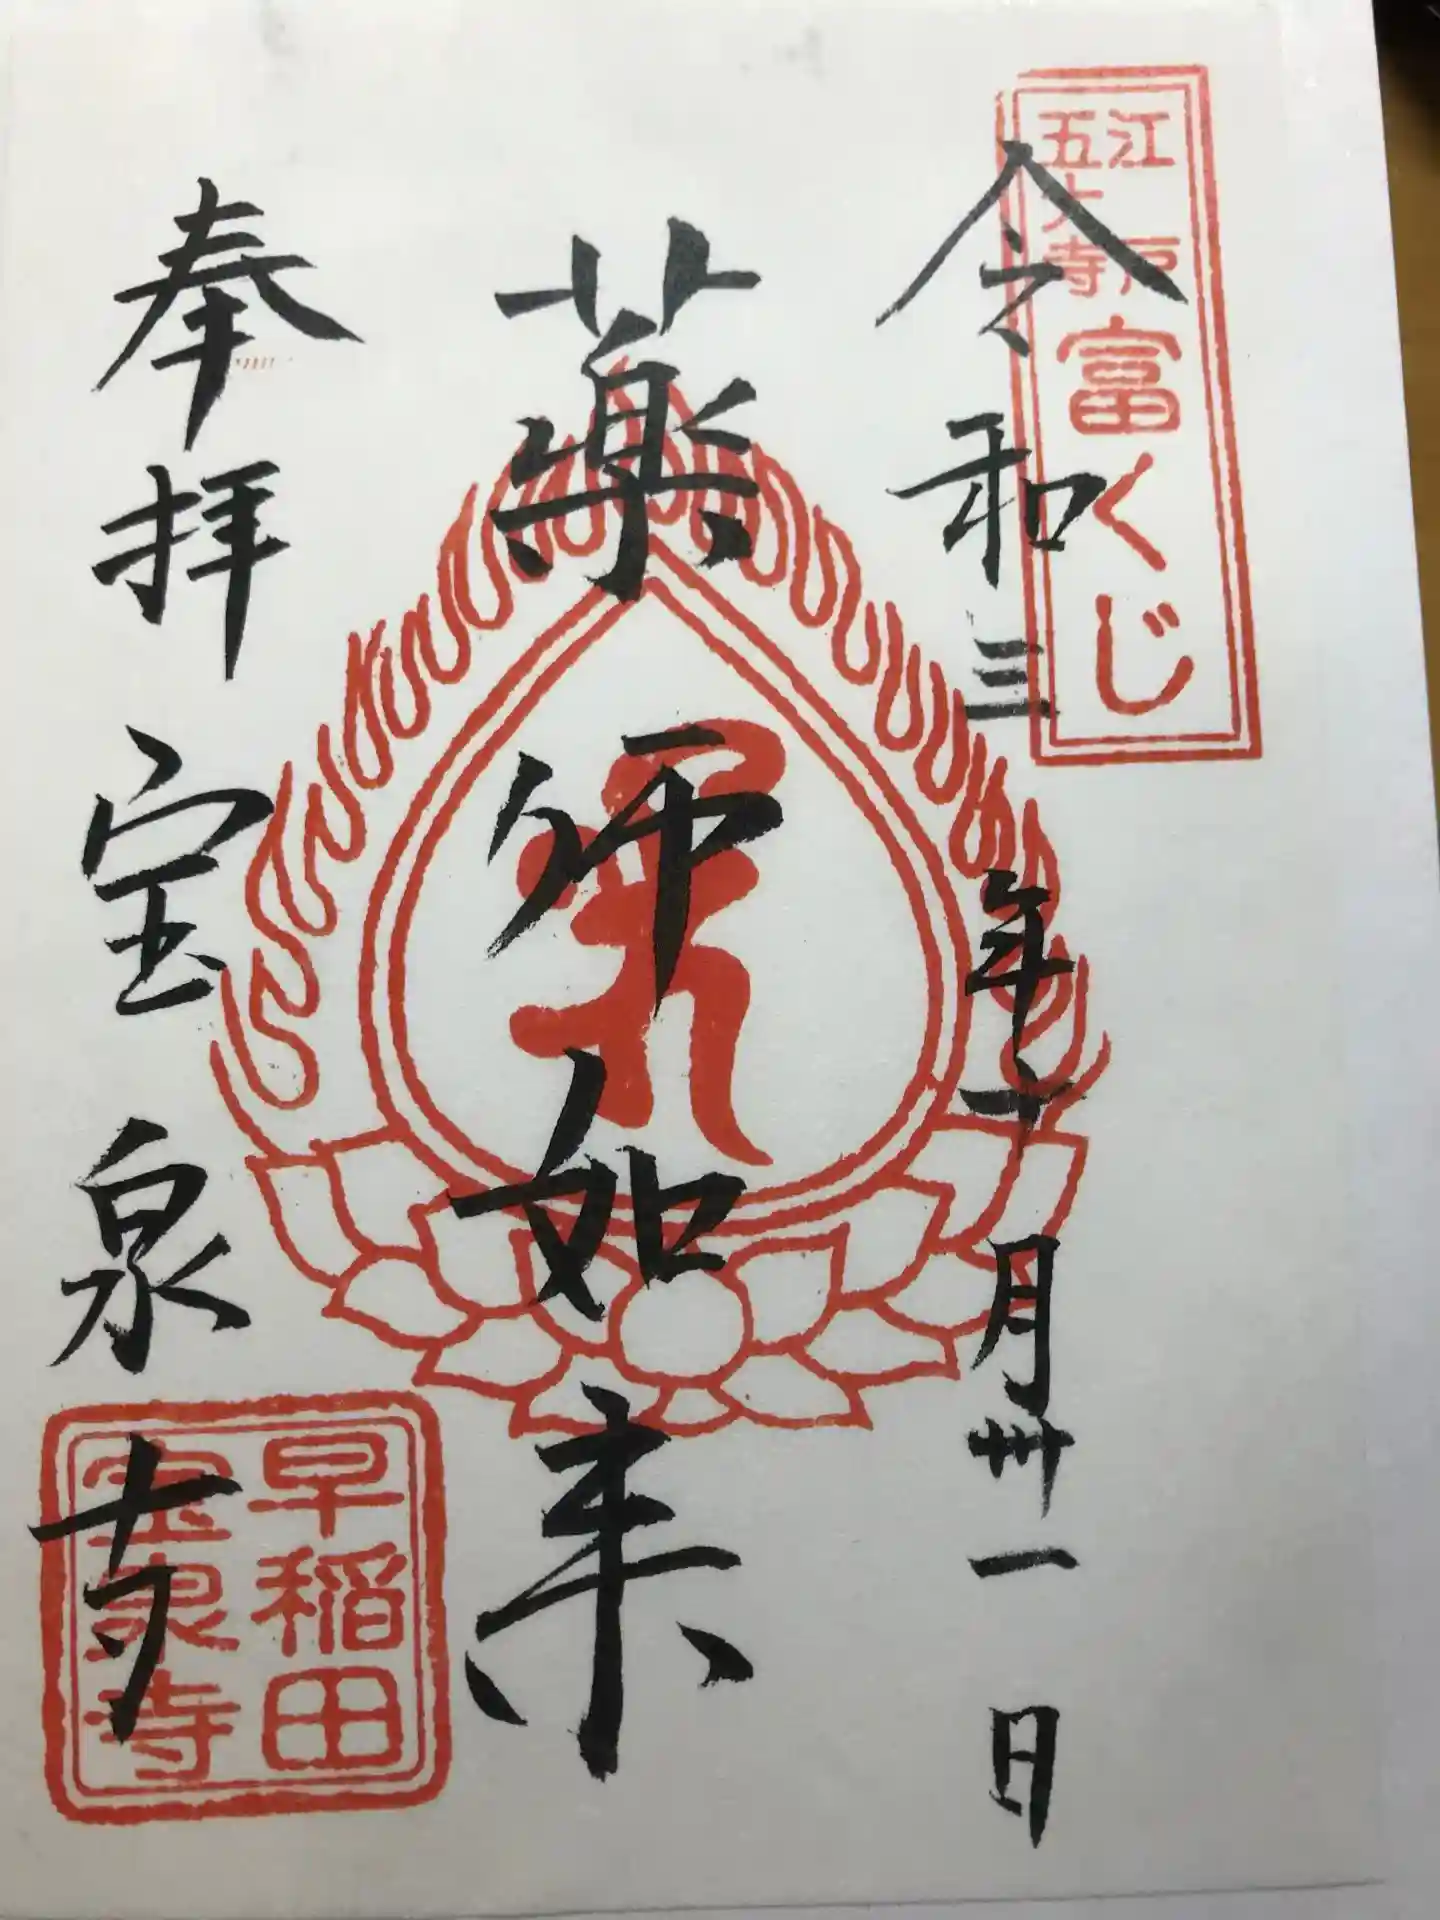 江戸
五大寺
富くじ
令和三年十月卅一日
薬師如来
奉拝 宝泉寺
早稲田
宝泉寺